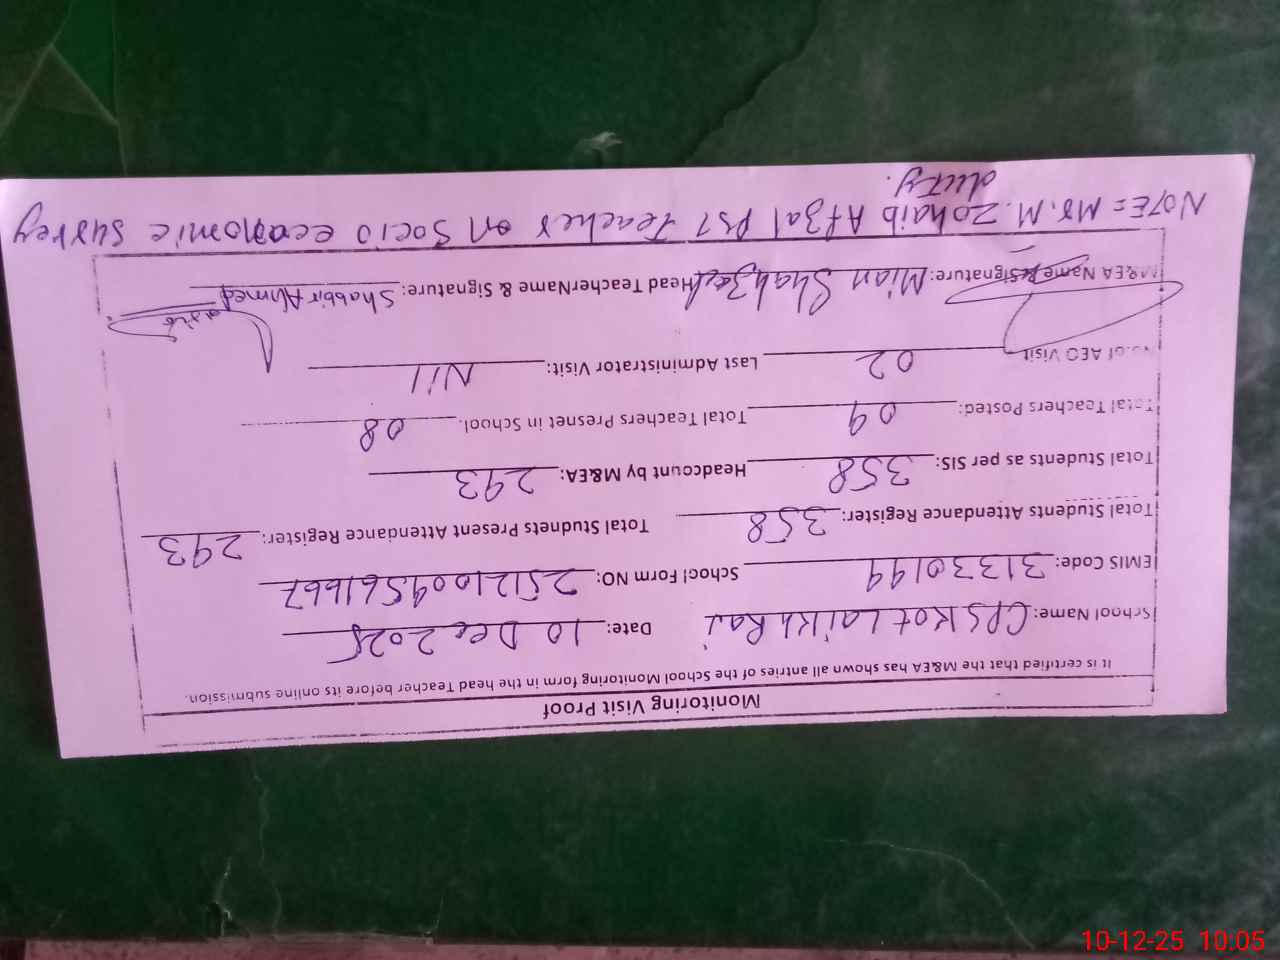 Monitoring Visit Proof
It is certified that the M&EA has shown all antries of the School Monitoring form in the head Teacher before its online submission.
School Name: CPS Kot Laikh Rai Date: 10 Dec 2025
EMIS Code: 31330199 School Form NO: 25121009561667
Total Students Attendance Register: 358 Total Studnets Present Attendance Register: 293
Total Students as per SIS: 358 Headcount by M&EA: 293
Total Teachers Posted: 09 Total Teachers Presnet in School. 08
No.of AEO Visit 02 Last Administrator Visit: Nil
M&EA Name & Signature: Mian Shahzad Head TeacherName & Signature: Shabbir Ahmed
NOTE= Mr. M. Zohaib Afzal PST Teacher on Socio economic survey
duty.
10-12-25 10:05